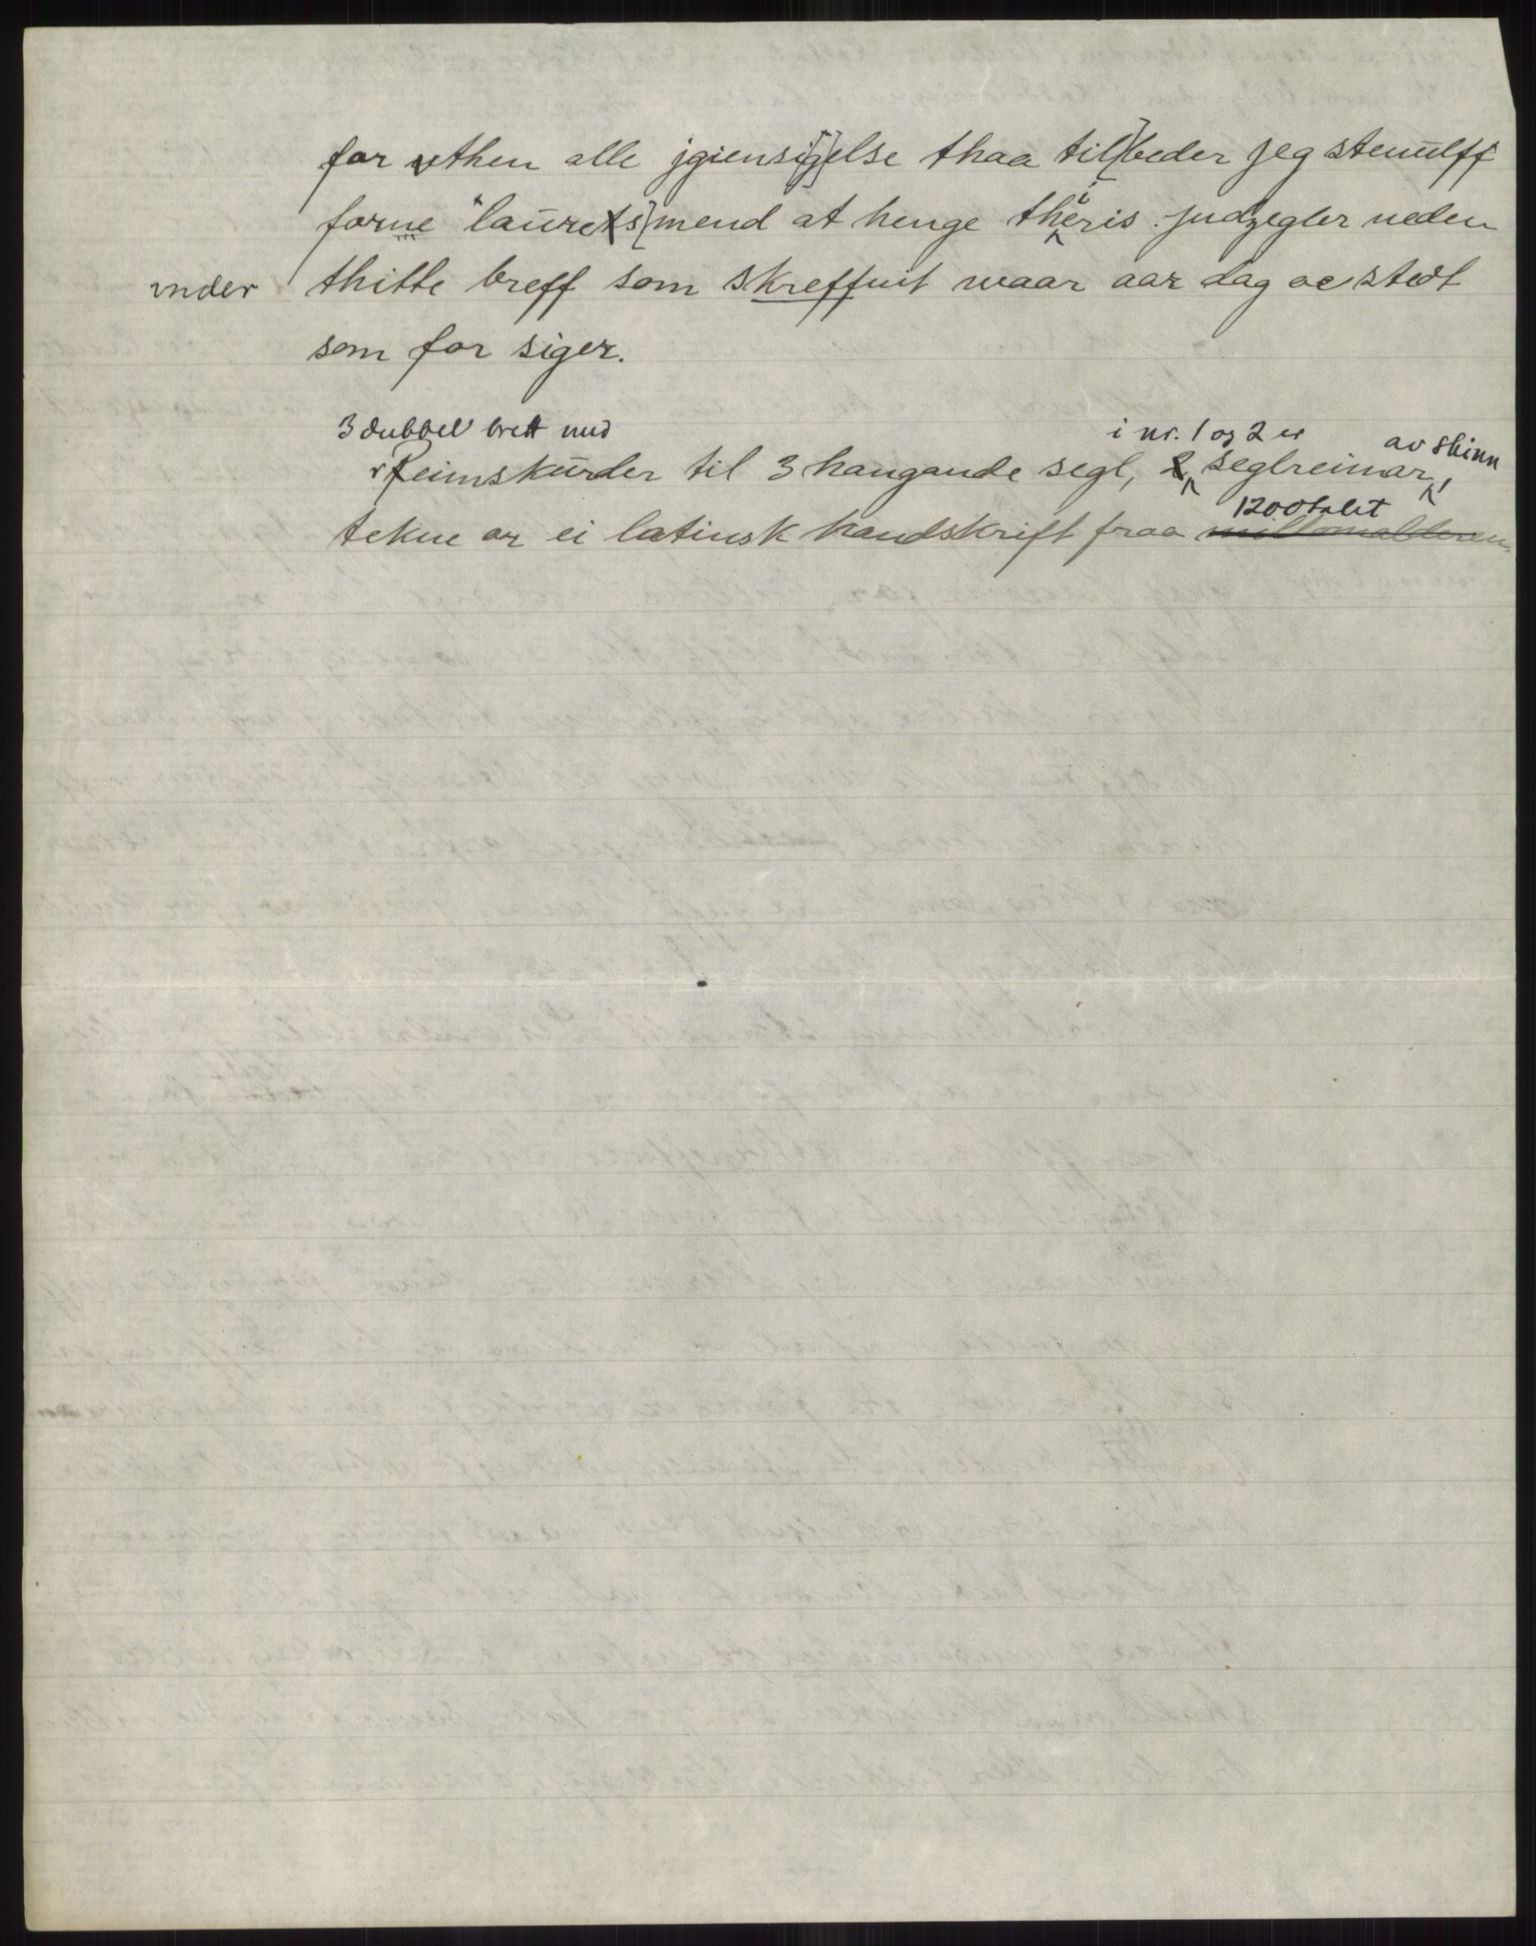 for vthen alle jgiensi[g]else thaa til[beder jeg stenulff
forne laurets[mend at henge theiris judzegler neden
vnder thitte breff som skreffuit waar aar dag oc stedt
som for siger.
3 dubbel brett med i nr. 1 og 2 er av skinn
reimskurder til 3 hangande segl, seglreimar,
1200talet
tekne or ei latinsk handskrift fraa millomalderen